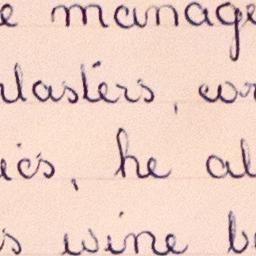 e manage
lasters, cor
ics, he al
s wine b